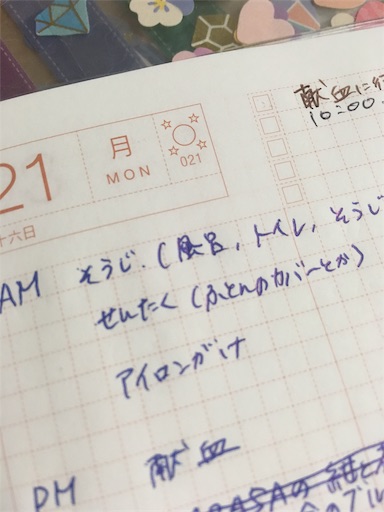 献血に行
10:00
21
月
MON
021
十六日
AM そうじ.(風呂,トイレ,そうじ
せんたく(ふとんのカバーとか)
アイロンがけ
PM 献血